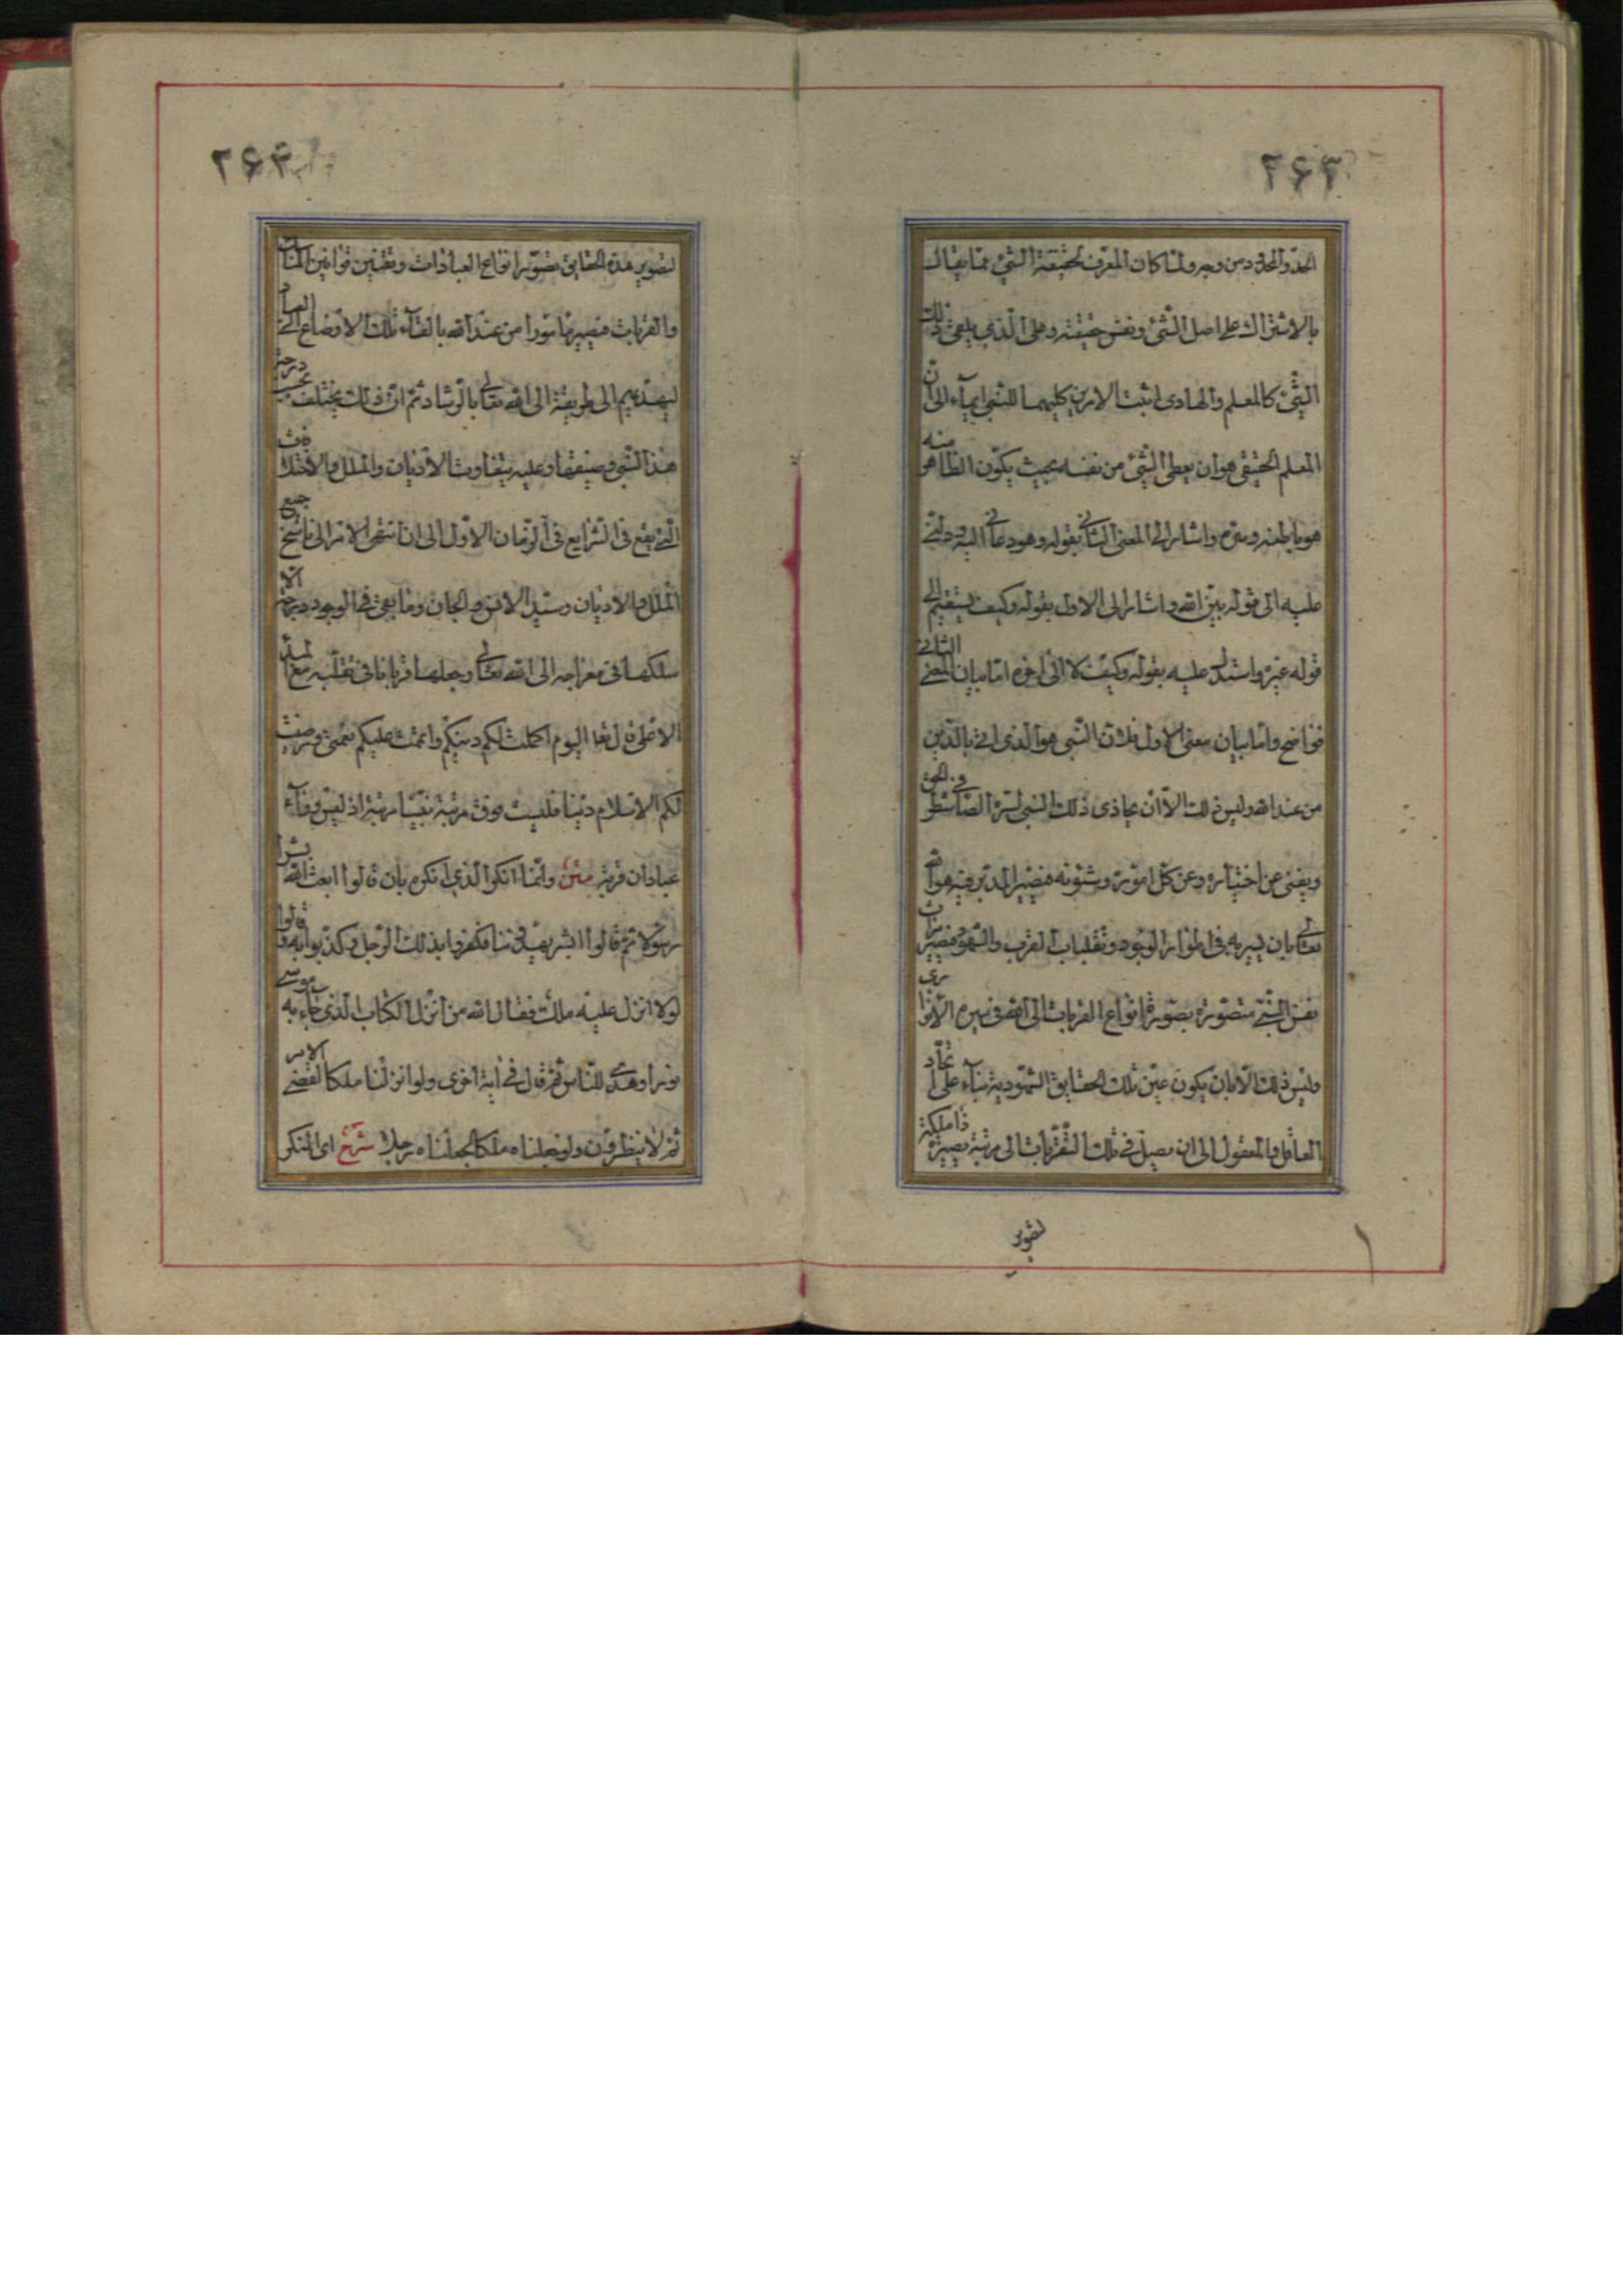 الحدّ والمحدود من وجه ولمّا كان المعرّف لحقيقة الشئ ممّا يقال
بالاشتراك على اصل الشئ ونفس حقيقته وعلى الّذى يدعى ذلك
الشئ كالمعلم والهادى اثبت الامرين كليهما للنبى ايمآء الى انّ
المعلم الحقيقى هو ان يعطى الشئ من نفسه بحيث يكون الظاهر منه
هو باطنه وسرّه واشار الى المعنى الثانى بقوله وهو دعانى اليه ودلّنى
عليه الى قوله بين الله واشار الى الاول بقوله وكيف يستقيم الى
قوله غيره واستدل عليه بقوله وكيف لا الى اخره امّا بيان المعنى الثانى
فواضح وامّا بيان معنى الاول فلانّ النّبى هو الذى اتى بالدّين
من عند الله وليس ذلك الّا ان يحاذى ذلك النبى بسرّه الصّافى شطر الحق
ويفنى عن اختياره وعن كلّ اموره وشئونه فيصير المدبّر فيه هو الله
تعالى بان يسير به فى اطوار الوجود وتقلبات القرب والشهود فيصير
نفس النّبى متصوّرة بصورة انواع القربات الى الله فى سيره
وليس ذلك الّا بان يكون عين تلك الحقايق الشهودية بنآء على اتّحاد
العاقل والمعقول الى ان يصل فى تلك التقرّبات الى مرتبة يصير ذا ملكة
لتصوير
٢۶٢
لتصوير هذه الحقايق بصورة انواع العبادات وتقنين قوانين
والقربات فيصير مأمورا من عند الله بالقآء تلك الاوضاع الى العباد
ليهديهم الى طريقة الى الله تعالى بالرشاد ثمّ انّ ذلك يختلف بحسب درجة
هذا النّبى وعليه يتفاوت الاديان والملل والاختلافات
الّتى يقع فى الشرايع فى الزمان الاول الى ان انتهى الامر الى ناسخ جميع
الملل والاديان وسيّد الانس والجان وما بقى فى الوجود درجة الّا
سلكها فى معراجه الى الله تعالى وجعلها قربانا فى تقلّبه مع
الاعلى قال تعالى اليوم اكملت لكم دينكم واتممت عليكم نعمتى ورضيت
لكم الاسلام دينا فليست فوق مرتبة نبيّنا مرتبة اذ ليس ورآء
عبادان قرية متن وانّما انكر الّذى انكره بان قالوا ابعث الله بشرا
رسولا ثمّ قالوا ابشر يهدوننا فكفروا بذلك الرّجل وكذّبوا به وقالوا
لولا انزل عليه ملك فقال الله من انزل الكتاب الّذى جآء به موسى
نورا وهدى للنّاس ثمّ قال فى آية اخرى ولو انزلنا ملكا لقضى الامر
ثمّ لا ينظرون ولو جعلناه ملكا لجعلناه رجلا شرح اى المنكر